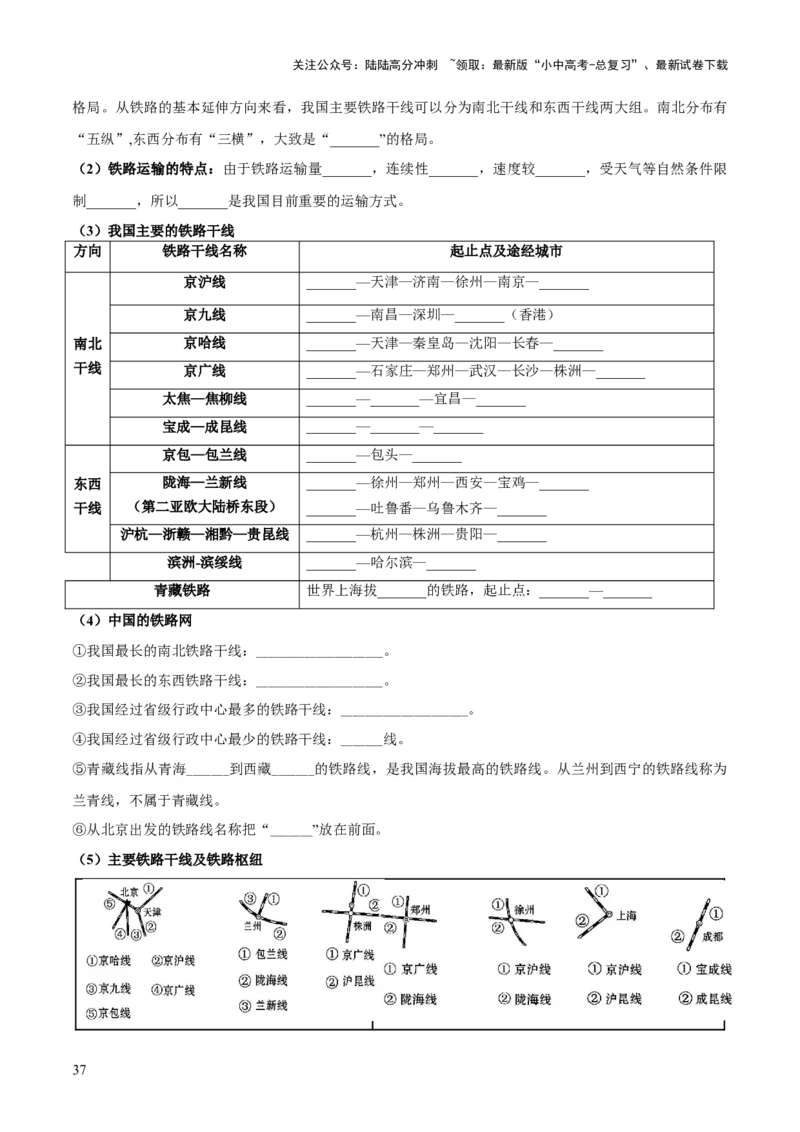 关注公众号：陆陆高分冲刺 ~领取：最新版“小中高考-总复习”、最新试卷下载
格局。从铁路的基本延伸方向来看，我国主要铁路干线可以分为南北干线和东西干线两大组。南北分布有
“五纵”,东西分布有“三横”，大致是“_______”的格局。
（2）铁路运输的特点：由于铁路运输量_______，连续性_______，速度较_______，受天气等自然条件限
制_______，所以_______是我国目前重要的运输方式。
（3）我国主要的铁路干线
方向 铁路干线名称 起止点及途经城市
京沪线 _______—天津—济南—徐州—南京—_______
京九线 _______—南昌—深圳—_______（香港）
南北 京哈线 _______—天津—秦皇岛—沈阳—长春—_______
干线 京广线 _______—石家庄—郑州—武汉—长沙—株洲—_______
太焦—焦柳线 _______—_______—宜昌—_______
宝成—成昆线 _______—_______—_______
京包—包兰线 _______—包头—_______
东西 陇海—兰新线 _______—徐州—郑州—西安—宝鸡—_______
干线 （第二亚欧大陆桥东段） _______—吐鲁番—乌鲁木齐—_______
沪杭—浙赣—湘黔—贵昆线 _______—杭州—株洲—贵阳—_______
滨洲-滨绥线 _______—哈尔滨—_______
青藏铁路 世界上海拔_______的铁路，起止点：_______—_______
（4）中国的铁路网
①我国最长的南北铁路干线：__________________。
②我国最长的东西铁路干线：__________________。
③我国经过省级行政中心最多的铁路干线：__________________。
④我国经过省级行政中心最少的铁路干线：______线。
⑤青藏线指从青海______到西藏______的铁路线，是我国海拔最高的铁路线。从兰州到西宁的铁路线称为
兰青线，不属于青藏线。
⑥从北京出发的铁路线名称把“______”放在前面。
（5）主要铁路干线及铁路枢纽
北京 ① ⑤ 天津 ② ④ ③
①京哈线 ②京沪线
③京九线 ④京广线
⑤京包线
③ ① 兰州 ②
① 包兰线
② 陇海线
③ 兰新线
① ② 株洲
① 京广线
② 沪昆线
① 郑州 ②
① 京广线
② 陇海线
① 徐州 ②
① 京沪线
② 陇海线
① 上海 ②
① 京沪线
② 沪昆线
① ② 成都
① 宝成线
② 成昆线
37